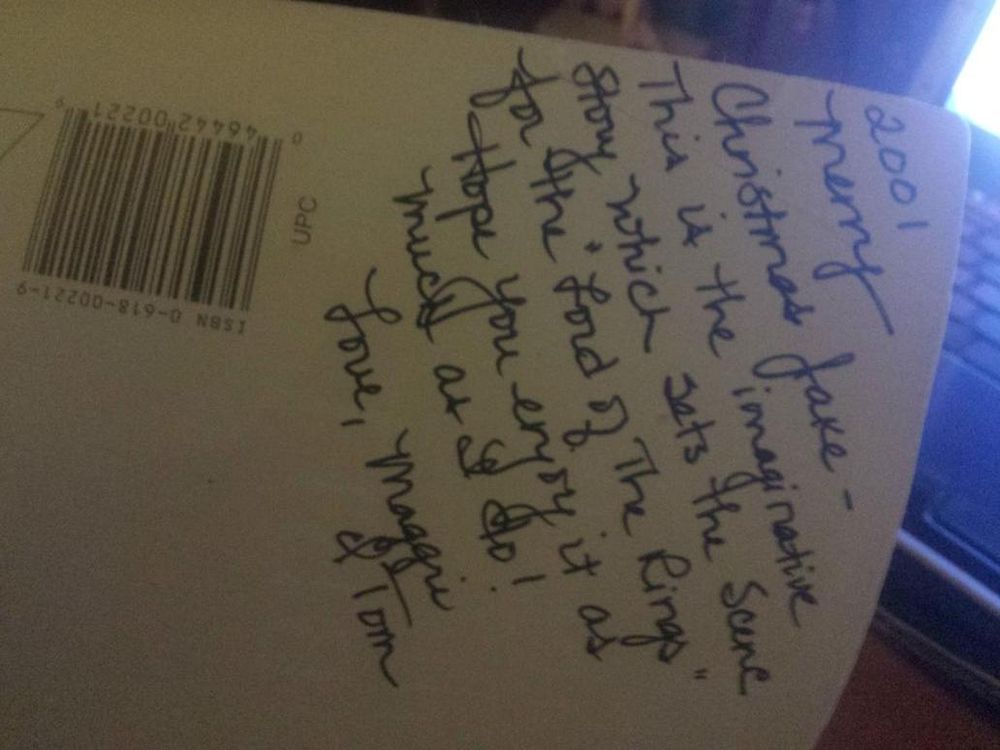 2001
Merry
Christmas Jake -
This is the imaginative
story which sets the scene
for the "Lord of The Rings"
Hope you enjoy it as
much as I do!
Love, Maggie
& Tom
UPC
0 46442 00221 9
ISBN 0-618-00221-9